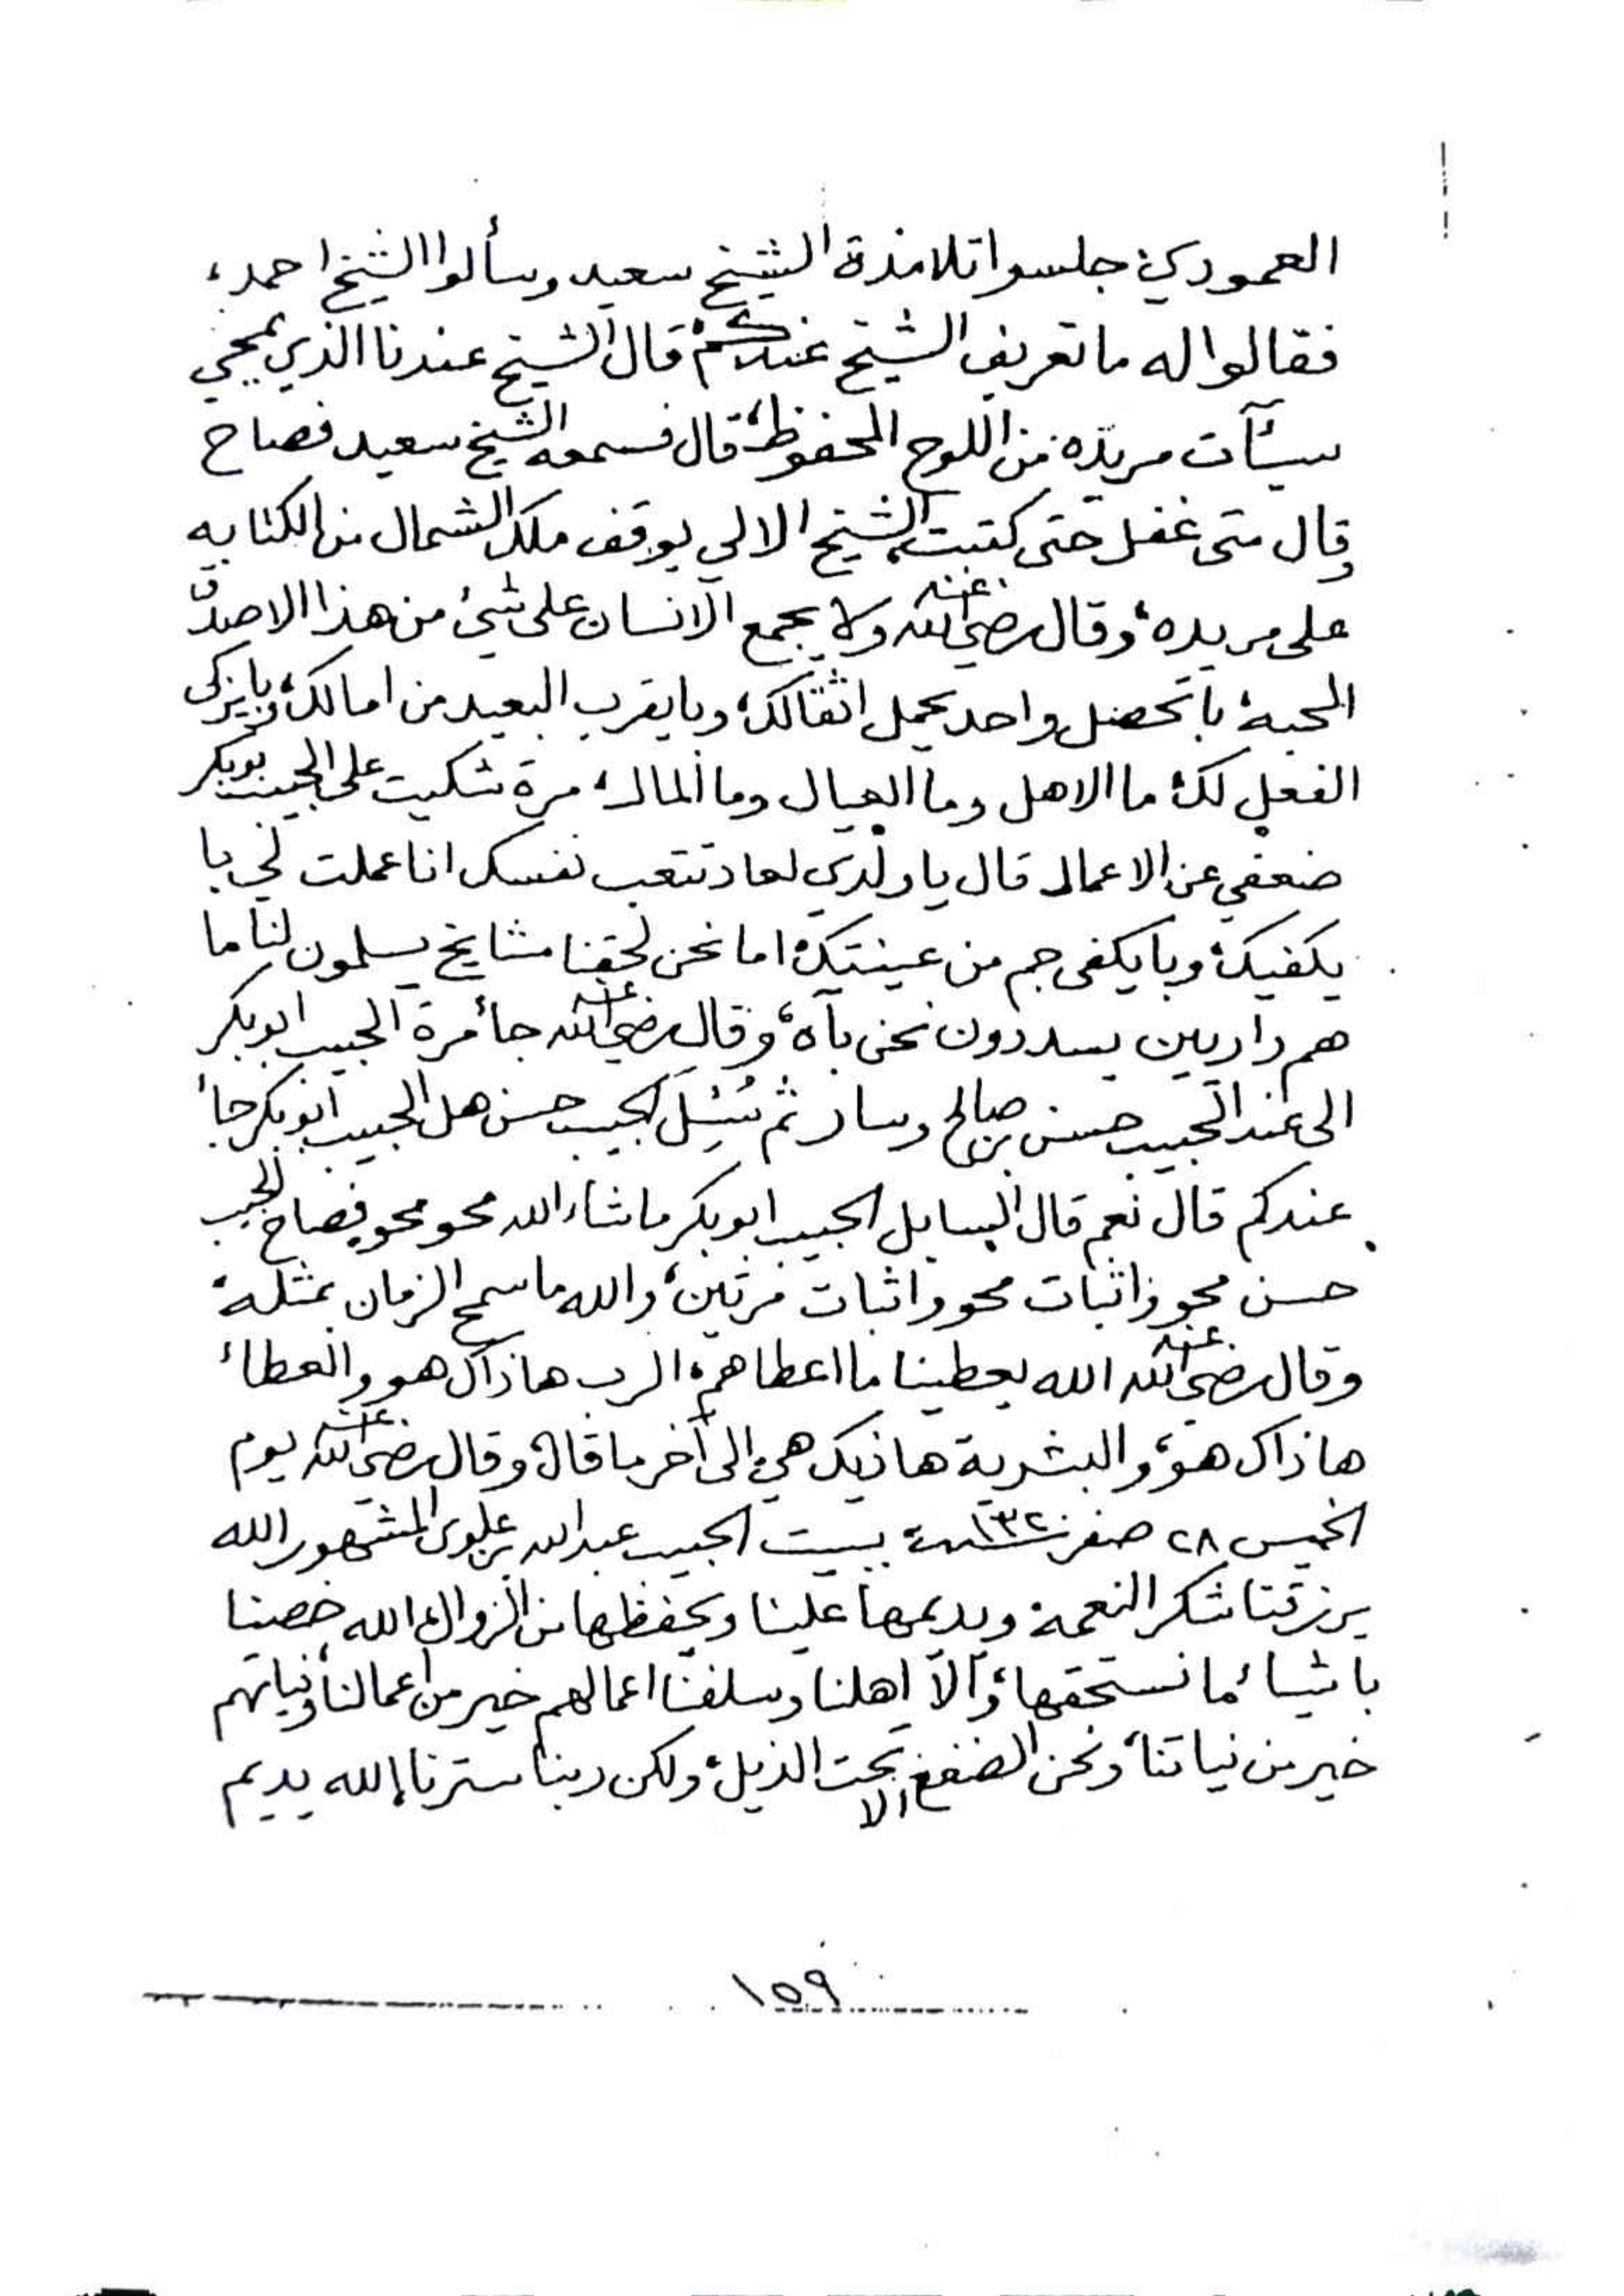 العمودي، جلسوا تلامذة الشيخ سعيد وسألوا الشيخ احمد،
فقالوا له ما تعريف الشيخ عندكم، قال الشيخ عندنا الذي يمحي
سيئآت مريده من اللوح المحفوظ، قال فسمعه الشيخ سعيد فصاح
وقال متى غفل حتى كتبت، الشيخ الا لي يوقف ملك الشمال من الكتابه
على مريده، وقال رضي الله عنه ولا يجمع الانسان على شيء من هذا الا صدق
المحبة، با تحصل واحد يحمل اثقالك، وبا يقرب البعيد من امالك، وبا يزكي
الفعل لك، ما الاهل وما العيال وما المال، مرة شكيت على الحبيب بوبكر
ضعفي عن الاعمال قال يا ولدي لعاد تتعب نفسك انا عملت لي با
يكفيك، وبا يكفي جم من عينتك، اما نحن لحقنا مشايخ يسلمون لنا ما
هم داريين يسددون نحن بآه، وقال رضي الله عنه جاء مرة الحبيب ابوبكر
الى عند الحبيب حسن بن صالح وسار ثم سُئِلَ الحبيب حسن هل الحبيب ابوبكر جاء
عندكم قال نعم قال السايل الحبيب ابوبكر ما شاء الله محو محو فصاح الحبيب
حسن محو واثبات محو واثبات مرتين، والله ما سمح الزمان بمثله
وقال رضي الله عنه الله يعطينا ما اعطاهم، الرب هاذاك هو والعطاء
هاذاك هو، والبشرية هاذيك هي، الى آخر ما قال، وقال رضي الله عنه يوم
الخميس ٢٨ صفر سنة ١٣٣٢ ببيت الحبيب عبدالله بن علوي المشهور الله
يرزقنا شكر النعمة ويديمها علينا ويحفظها من الزوال، الله خصينا
باشياء ما نستحقها، وآلّا اهلنا وسلفنا اعمالهم خير من اعمالنا، ونياتهم
خير من نياتنا، ونحن الا تحت الذيل، ولكن ربنا سترنا، الله يديم
١٥٩